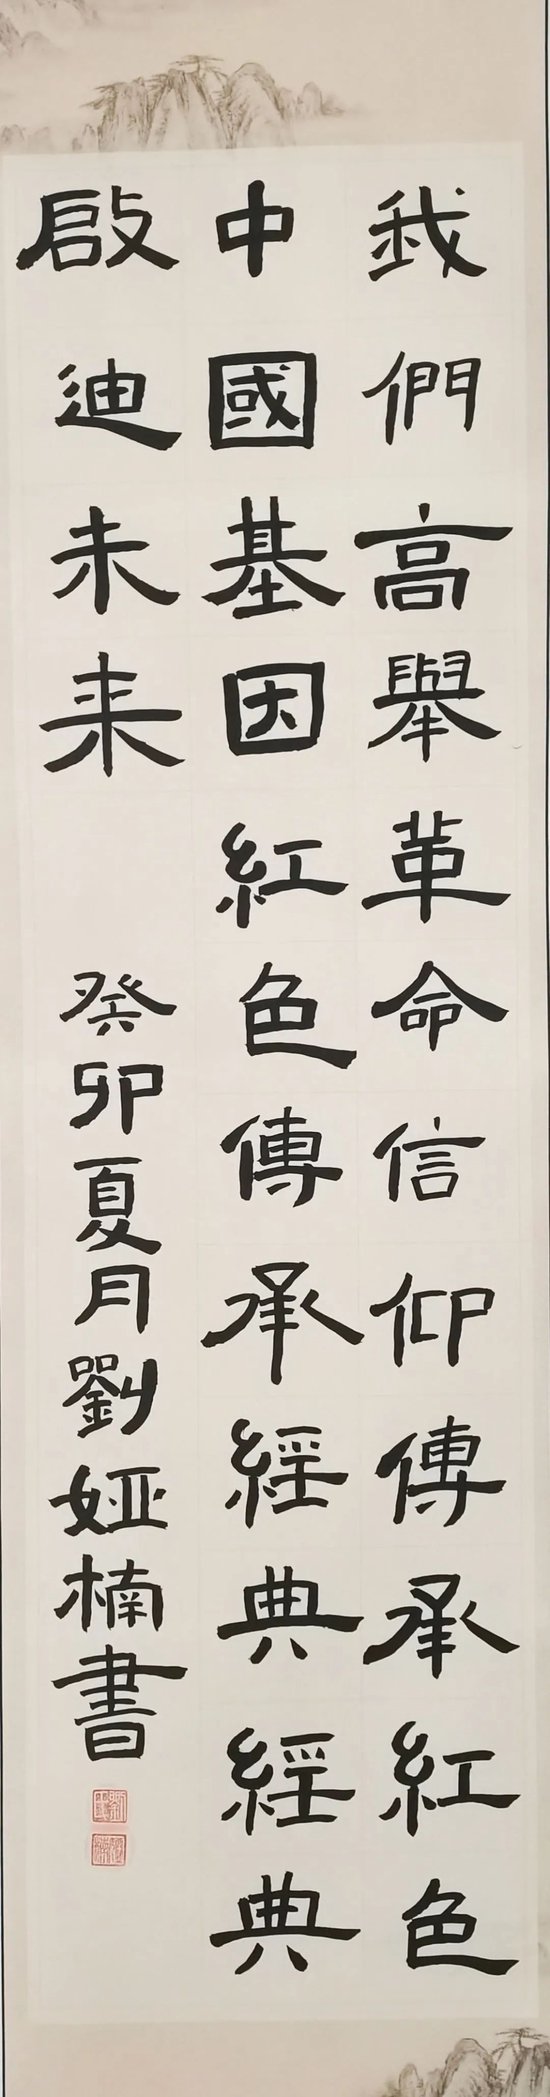 我們高舉革命信仰傳承紅色
中國基因紅色傳承經典經典
啟迪未来
癸卯夏月劉娅楠書